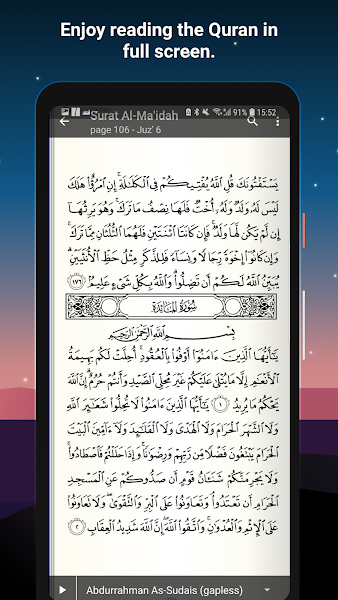 Enjoy reading the Quran in
full screen.
91% 15:52
Surat Al-Ma'idah
page 106 - Juz' 6
يَسْتَفْتُونَكَ قُلِ ٱللَّهُ يُفْتِيكُمْ فِي ٱلْكَلَٰلَةِ ۚ إِنِ ٱمْرُؤٌا۟ هَلَكَ
لَيْسَ لَهُۥ وَلَدٌ وَلَهُۥٓ أُخْتٌ فَلَهَا نِصْفُ مَا تَرَكَ ۚ وَهُوَ يَرِثُهَآ
إِن لَّمْ يَكُن لَّهَا وَلَدٌ ۚ فَإِن كَانَتَا ٱثْنَتَيْنِ فَلَهُمَا ٱلثُّلُثَانِ مِمَّا تَرَكَ ۚ
وَإِن كَانُوٓا۟ إِخْوَةً رِّجَالًا وَنِسَآءً فَلِلذَّكَرِ مِثْلُ حَظِّ ٱلْأُنثَيَيْنِ ۗ
يُبَيِّنُ ٱللَّهُ لَكُمْ أَن تَضِلُّوا۟ ۗ وَٱللَّهُ بِكُلِّ شَىْءٍ عَلِيمٌۢ ١٧٦
سُورَةُ المَائِدَةِ
بِسْمِ ٱللَّهِ ٱلرَّحْمَٰنِ ٱلرَّحِيمِ
يَٰٓأَيُّهَا ٱلَّذِينَ ءَامَنُوٓا۟ أَوْفُوا۟ بِٱلْعُقُودِ ۚ أُحِلَّتْ لَكُم بَهِيمَةُ
ٱلْأَنْعَٰمِ إِلَّا مَا يُتْلَىٰ عَلَيْكُمْ غَيْرَ مُحِلِّى ٱلصَّيْدِ وَأَنتُمْ حُرُمٌ ۗ إِنَّ ٱللَّهَ
يَحْكُمُ مَا يُرِيدُ ١ يَٰٓأَيُّهَا ٱلَّذِينَ ءَامَنُوا۟ لَا تُحِلُّوا۟ شَعَٰٓئِرَ ٱللَّهِ
وَلَا ٱلشَّهْرَ ٱلْحَرَامَ وَلَا ٱلْهَدْىَ وَلَا ٱلْقَلَٰٓئِدَ وَلَآ ءَآمِّينَ ٱلْبَيْتَ
ٱلْحَرَامَ يَبْتَغُونَ فَضْلًا مِّن رَّبِّهِمْ وَرِضْوَٰنًا ۚ وَإِذَا حَلَلْتُمْ فَٱصْطَادُوا۟ ۚ
وَلَا يَجْرِمَنَّكُمْ شَنَـَٔانُ قَوْمٍ أَن صَدُّوكُمْ عَنِ ٱلْمَسْجِدِ
ٱلْحَرَامِ أَن تَعْتَدُوا۟ ۘ وَتَعَاوَنُوا۟ عَلَى ٱلْبِرِّ وَٱلتَّقْوَىٰ ۖ وَلَا تَعَاوَنُوا۟
عَلَى ٱلْإِثْمِ وَٱلْعُدْوَٰنِ ۚ وَٱتَّقُوا۟ ٱللَّهَ ۖ إِنَّ ٱللَّهَ شَدِيدُ ٱلْعِقَابِ ٢
Abdurrahman As-Sudais (gapless)